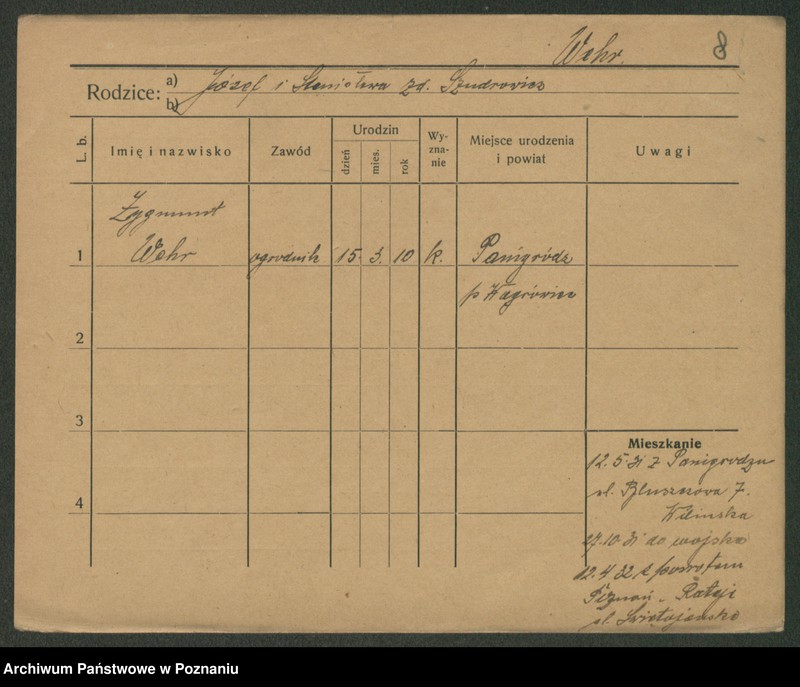 Wehr.
8
Rodzice: a) Józef i Stanisława zd. Szudrowicz
b)
L. b.
Imię i nazwisko
Zawód
Urodzin
dzień
mies.
rok
Wy-
zna-
nie
Miejsce urodzenia
i powiat
Uwagi
Zygmunt
1 Wehr ogrodnik 15. 3. 10 k. Panigródz
p Wągrówiec
2
3
4
Mieszkanie
12.5.31 z Panigrodza
ul. Bluszczowa 7.
Wilinska
27.10.31 do wojska
12.4.32 z powrotem
Poznań - Rataje
ul. Świętojańska